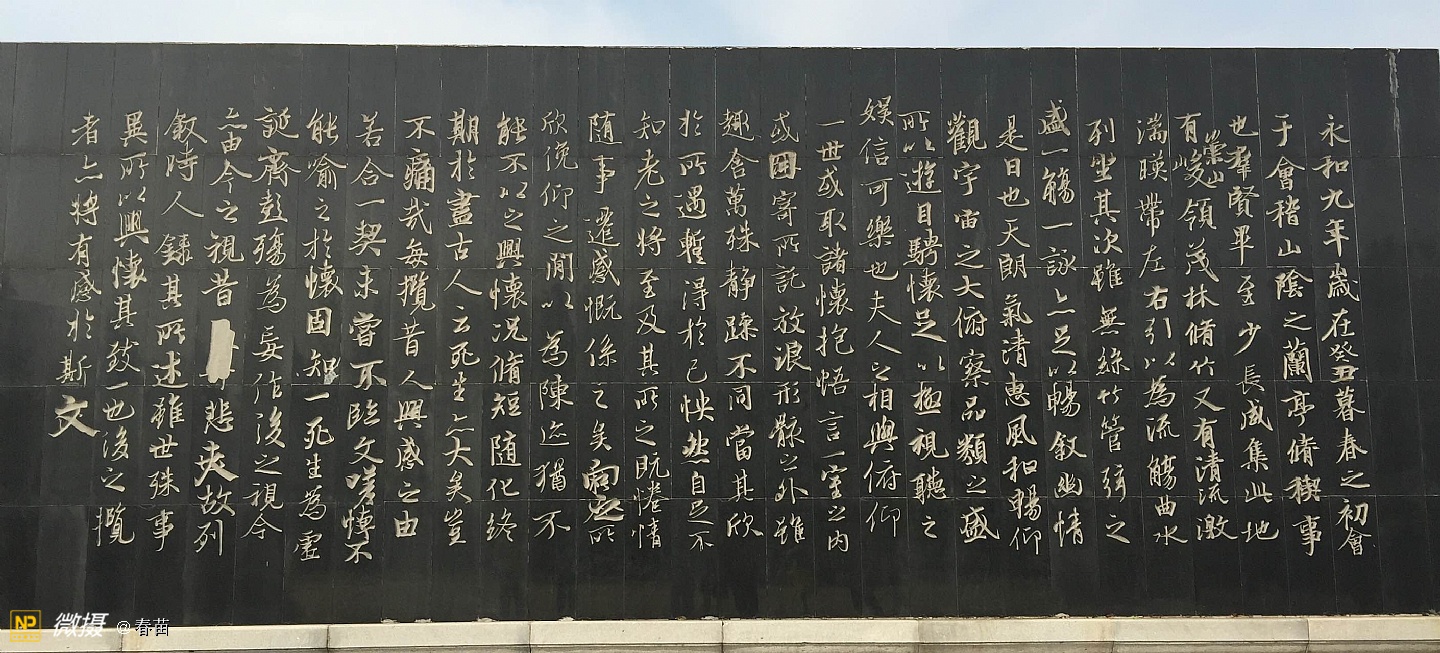 永和九年歲在癸丑暮春之初會
于會稽山陰之蘭亭脩禊事
也羣賢畢至少長咸集此地
有崇山峻領茂林脩竹又有清流激
湍暎帶左右引以為流觴曲水
列坐其次雖無絲竹管弦之
盛一觴一詠亦足以暢叙幽情
是日也天朗氣清惠風和暢仰
觀宇宙之大俯察品類之盛
所以遊目騁懷足以極視聽之
娛信可樂也夫人之相與俯仰
一世或取諸懷抱悟言一室之內
或因寄所託放浪形骸之外雖
趣舍萬殊静躁不同當其欣
於所遇暫得於己怏然自足不
知老之將至及其所之既惓情
隨事遷感慨係之矣向之所
欣俛仰之閒以為陳迹猶不
能不以之興懷况脩短隨化終
期於盡古人云死生亦大矣豈
不痛哉每攬昔人興感之由
若合一契未嘗不臨文嗟悼不
能喻之於懷固知一死生為虛
誕齊彭殤為妄作後之視今
亦由今之視昔悲夫故列
叙時人錄其所述雖世殊事
異所以興懷其致一也後之攬
者亦將有感於斯文
NP 微摄 @春苗